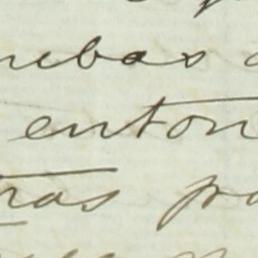 uebas
enton
tras po